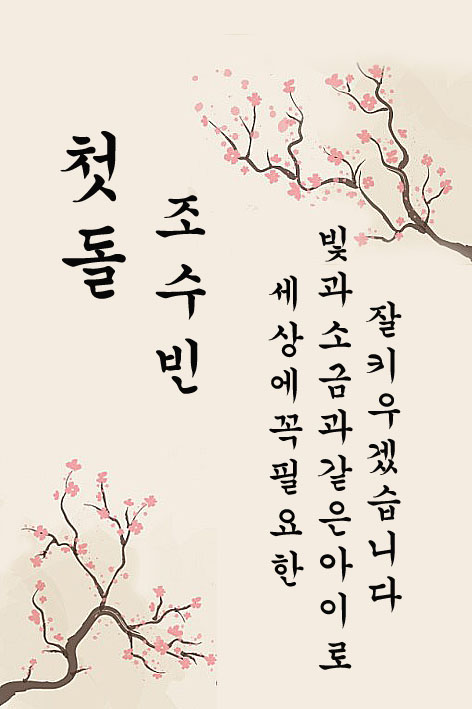 첫돌
조수빈
세상에꼭필요한
빛과소금과같은아이로
잘키우겠습니다